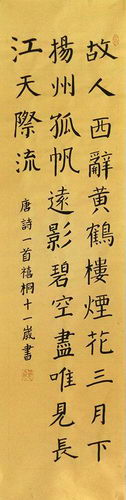 故人西辭黃鶴樓煙花三月下
揚州孤帆遠影碧空盡唯見長
江天際流
唐詩一首禧桐十一歲書